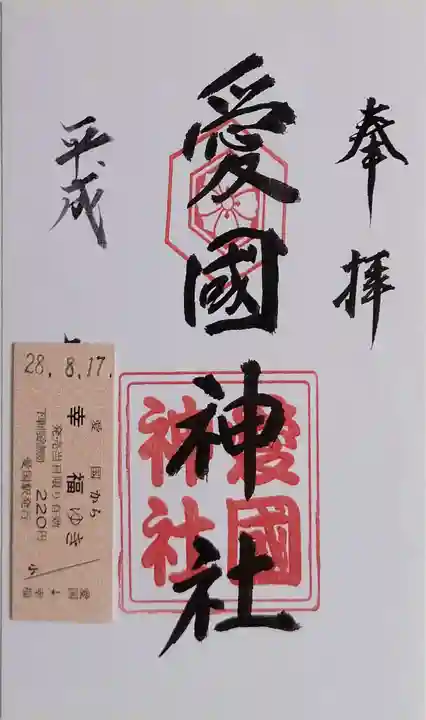 奉拝
愛國神社
愛國
神社
平成
28.8.17.
愛国から
幸福ゆき
発売当日限り有効
下車前途無効
220円
愛国駅発行
小
愛国
幸福